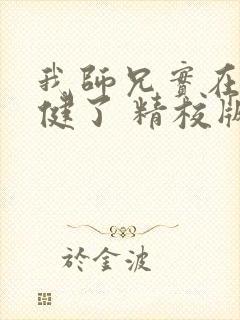 我師兄實在
健了 精校版
於金波